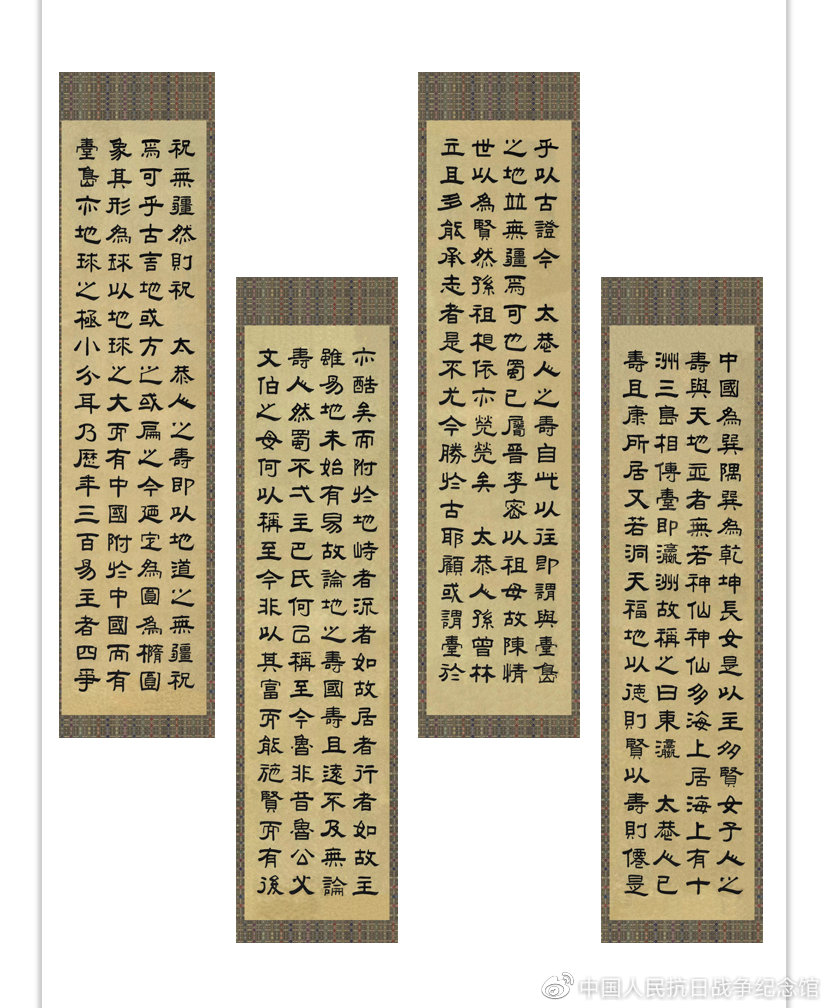 祝無疆然則祝 太恭人之壽即以地道之無疆祝
焉可乎古言地或方之或扁之今廼定為圓為橢圓
象其形為球以地球之大而有中國附於中國而有
臺島亦地球之極小分耳乃歷年三百易主者四爭
亦酷矣而附於地峙者流者如故居者行者如故主
雖易地未始有易故論地之壽國壽且遠不及無論
壽人然蜀不弍主巴氏何㠯稱至今魯非昔魯公父
文伯之母何以稱至今非以其富而能施賢而有後
乎以古證今 太恭人之壽自此以往即謂與臺島
之地並無疆焉可也蜀已屬晉李密以祖母故陳情
世以為賢然孫祖相依亦煢煢矣 太恭人孫曾林
立且多能承志者是不尤今勝於古耶顧或謂臺於
中國為巽隅巽為乾坤長女是以主多賢女子人之
壽與天地並者無若神仙神仙多海上居海上有十
洲三島相傳臺即瀛洲故稱之曰東瀛 太恭人已
壽且康所居又若洞天福地以德則賢以壽則僊是
中国人民抗日战争纪念馆